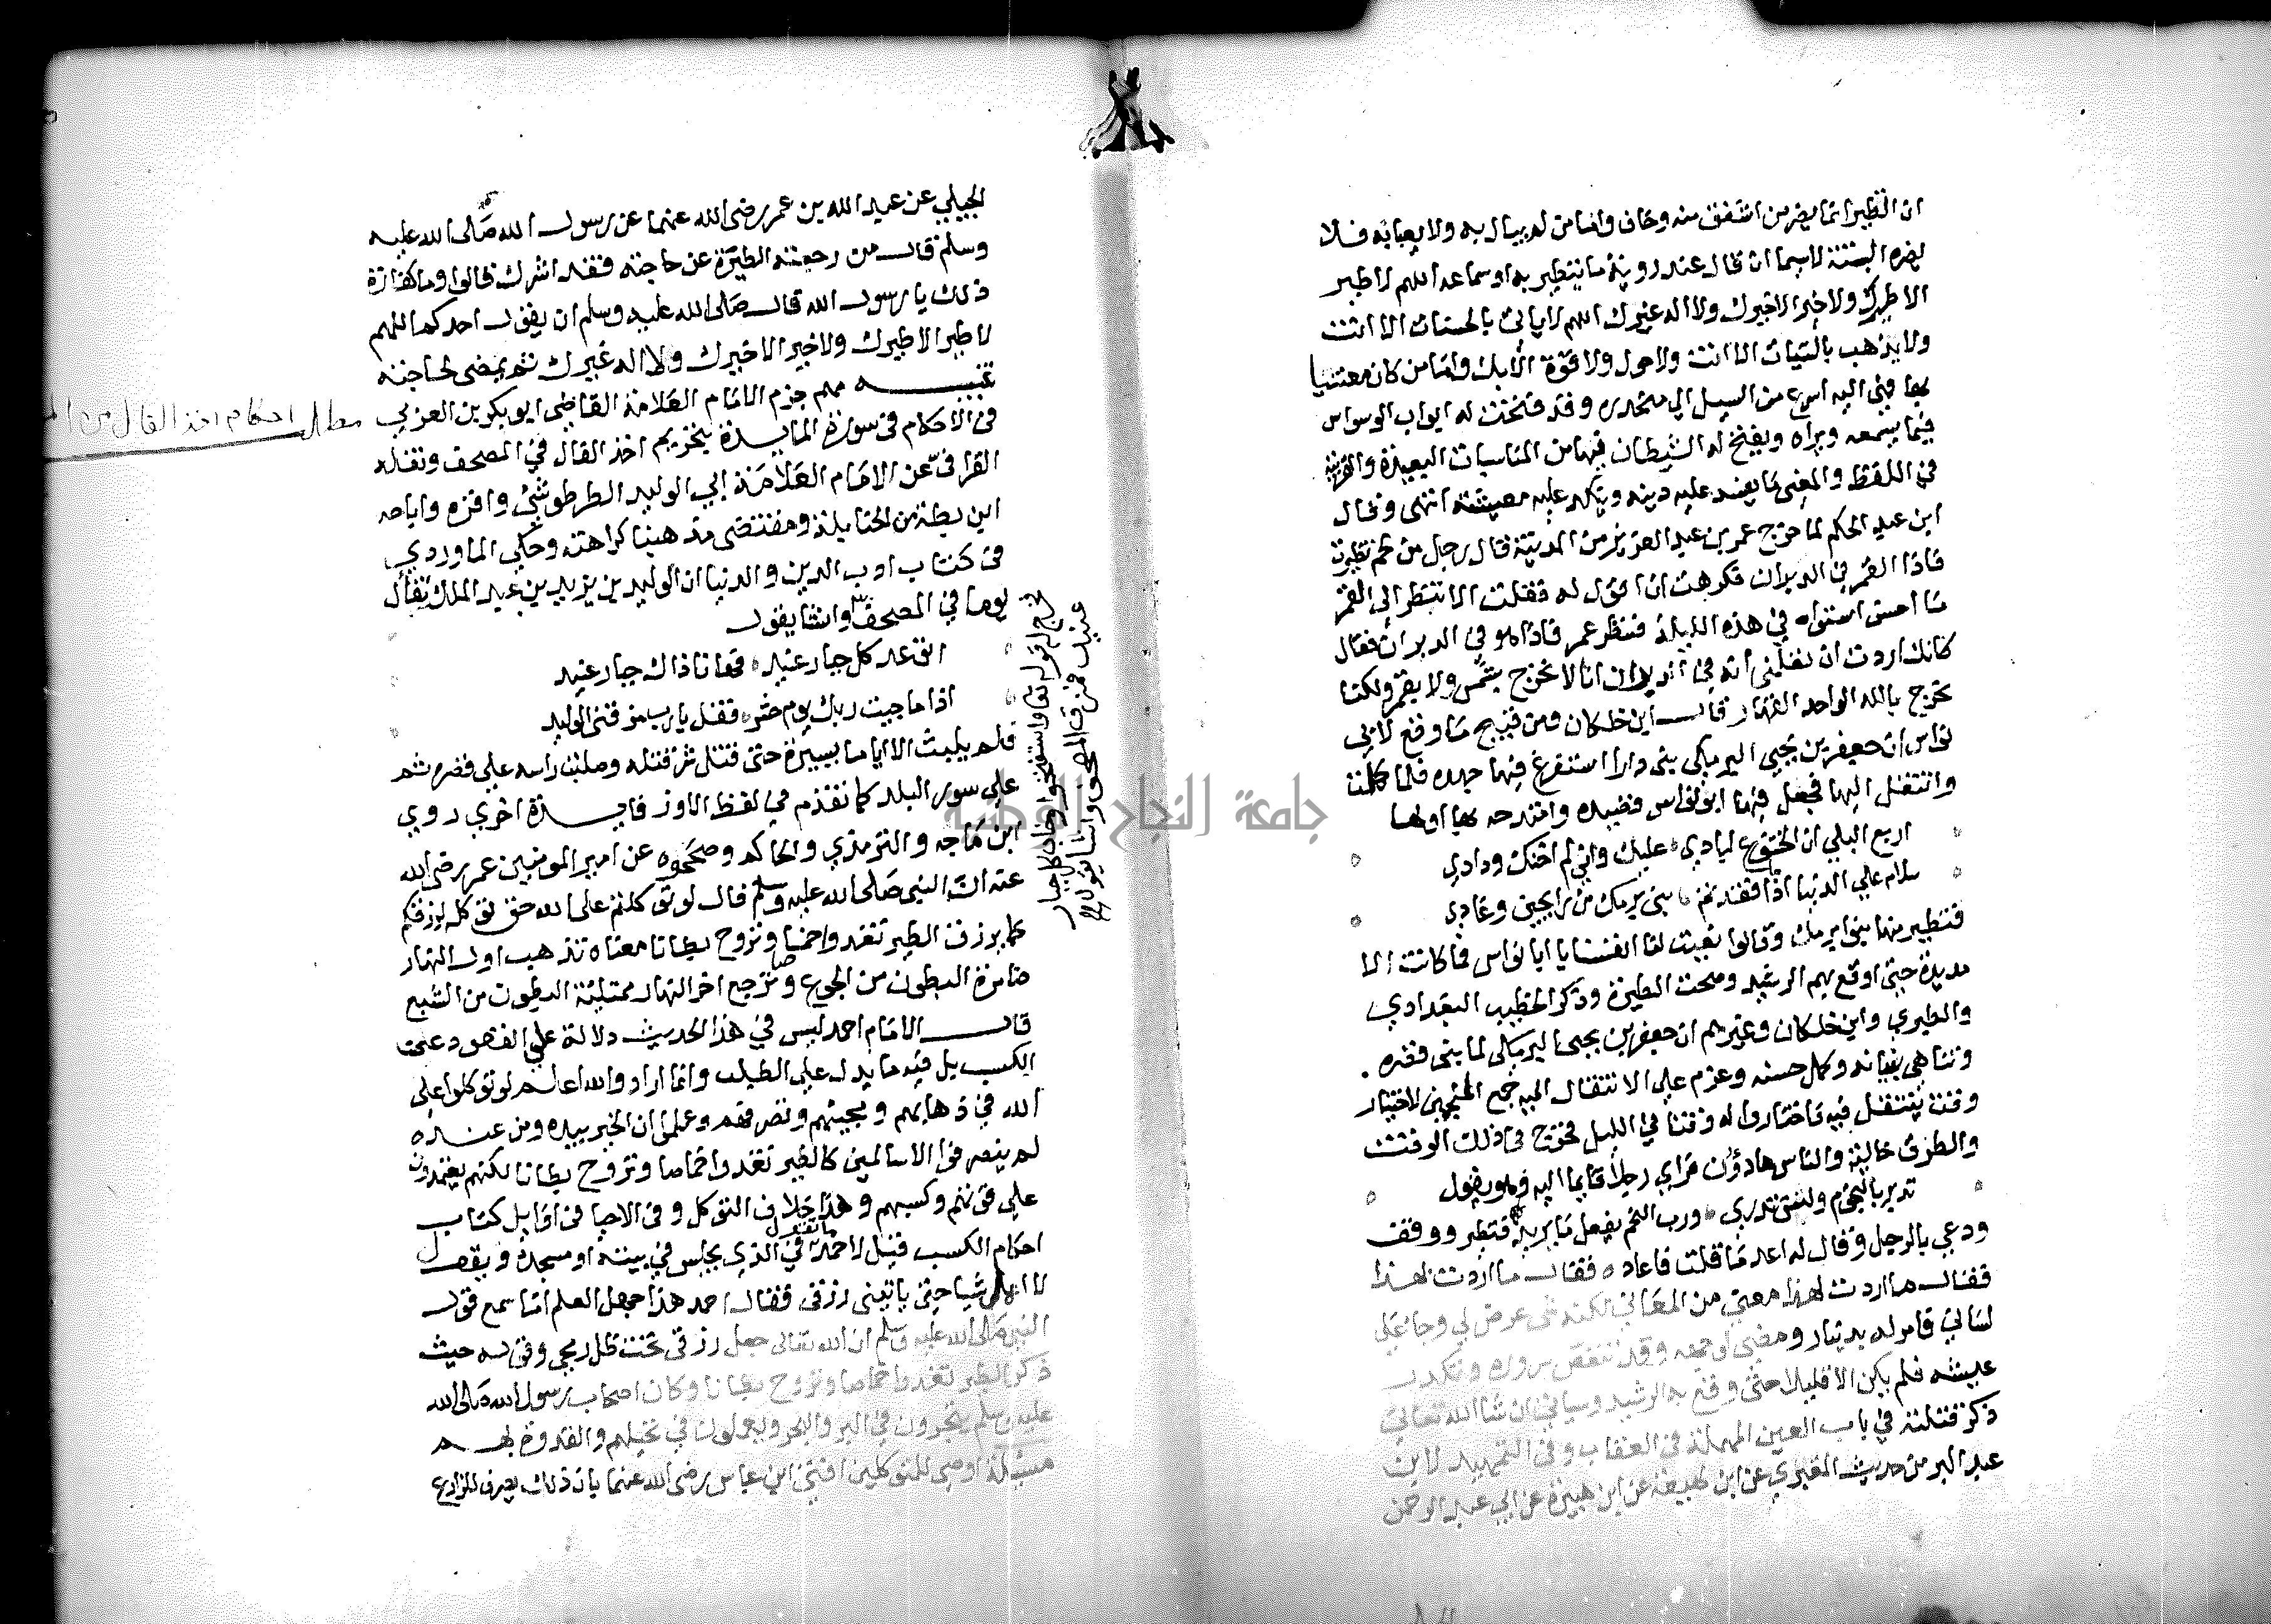 ان التطير انما يضر من اشفق منه وخاف واما من لم يبال به ولا يعبا به فلا
يضره البتة لاسيما ان قال عند روية ما يتطير به او سماعه اللهم لا طير
الا طيرك ولا خير الا خيرك ولا اله غيرك اللهم لا ياتي بالحسنات الا انت
ولا يذهب بالسيات الا انت ولا حول ولا قوة الا بك واما من كان معتنيا
بها فهي اليه اسرع من السيل الي منحدره وقد فتحت له ابواب الوسواس
فيما يسمعه ويراه ويفتح له الشيطان فيها من المناسبات البعيدة والقريبة
في اللفظ والمعني ما يفسد عليه دينه وينكد عليه معيشته انتهى وقال
ابن عبد الحكم لما خرج عمر بن عبد العزيز من المدينة قال رجل من لخم نظرت
فاذا القمر في الدبران فكرهت ان اقول له فقلت الا تنظر الى القمر
ما احسن استواه في هذه الليلة فنظر عمر فاذا هو في الدبران فقال
كانك اردت ان تعلمني انه في الدبران انا لا نخرج بشمس ولا بقمر ولكنا
نخرج بالله الواحد القهار قال ابن خلكان ومن قبيح ما وقع لابي
نواس ان جعفر بن يحيي البرمكي بنى دارا استفرغ فيها جهده فلما كملت
وانتقل اليها فعمل فيها ابو نواس قصيده وامتدحه بها اولها
اربع البلي ان الخشوع لبادي عليك واني لم اخنك ودادي
سلام علي الدنيا اذا ما فقدتم بني برمك من رايحين وغادي
فتطير منها بنوا برمك وقالوا نعيت لنا انفسنا يا ابا نواس فما كانت الا
مديدة حتي اوقع بهم الرشيد وصحت الطيرة وذكر الخطيب البغدادي
والطبري وابن خلكان وغيرهم ان جعفر بن يحيى البرمكي لما بنى قصره
وتناهي بنيانه وكمل حسنه وعزم علي الانتقال اليه جمع المنجمين لاختيار
وقت ينتقل فيه فاختاروا له وقتا في الليل فخرج في ذلك الوقت
والطرق خالية والناس هادؤن فراي رجلا قايما اليه وهو يقول
تدبر بالنجوم ولست تدري ورب النجم يفعل ما يريد فتطير ووقف
ودعي بالرجل وقال له اعد ما قلت فاعاده فقال ما اردت بهذا
فقال ما اردت لهذا معني من المعاني لكنه شي عرض لي وجا علي
لساني فامر له بدينار ومضي لوجهه وقد تنغص سروره وتكدر
عيشه فلم يكن الا قليلا حتى وقع به الرشيد وسياتي ان شا الله تعالي
ذكر قتلته في باب العين المهملة في العقاب وفي التمهيد لابن
عبد البر من حديث المقبري عن ابن لهيعة عن ابن هبيرة عن ابي عبد الرحمن
الجبلي عن عبد الله بن عمر رضى الله عنهما عن رسول الله صلى الله عليه
وسلم قال من رجعته الطيرة عن حاجته فقد اشرك قالوا وما كفارة
ذلك يا رسول الله قال صلى الله عليه وسلم ان يقول احدكم اللهم
لا طير الا طيرك ولا خير الا خيرك ولا اله غيرك ثم يمضى لحاجته
تنبيه مهم جزم الامام العلامة القاضي ابو بكر بن العربي
في الاحكام في سورة المايدة بتحريم اخذ الفال في المصحف ونقله
القرافي عن الامام العلامة ابي الوليد الطرطوشي واقره واباحه
ابن بطة من الحنابلة ومقتضى مذهبنا كراهته وحكي الماوردي
في كتاب ادب الدين والدنيا ان الوليد بن يزيد بن عبد الملك تفأل
يوما في المصحف وانشا يقول
اتوعد كل جبار عنيد فها انا ذاك جبار عنيد
اذا ما جيت ربك يوم حشر فقل يا رب مزقني الوليد
فلم يلبث الا اياما يسيرة حتى قتل شر قتله وصلبت راسه علي قصره ثم
علي سور البلد كما تقدم في لفظ الاوز فايدة اخري روي
ابن ماجه والترمذي والحاكم وصححوه عن امير المومنين عمر رضى الله
عنه ان النبي صلى الله عليه وسلم قال لو توكلتم على الله حق توكله لرزقكم
كما يرزق الطير تغدوا خمصا وتروح بطانا معناه تذهب اول النهار
ضامرة البطون من الجوع وترجع اخر النهار ممتلية البطون من الشبع
قال الامام احمد ليس في هذا الحديث دلالة علي القعود عن
الكسب بل فيه ما يدل علي الطلب وانما اراد والله اعلم لو توكلوا على
الله في ذهابهم ومجيئهم وتصرفهم وعلموا ان الخير بيده ومن عنده
لم ينصرفوا الا سالمين كالطير تغدوا خماصا وتروح بطانا لكنهم يعتمدون
علي قوتهم وكسبهم وهذا خلاف التوكل وفي الاحيا في اوايل كتاب
احكام الكسب قيل لاحمد ما تقول في الذي يجلس في بيته او مسجده ويقول
لا اعمل شيا حتى ياتيني رزقي فقال احمد هذا جهل العلم اما سمع قول
النبي صلى الله عليه وسلم ان الله تعالى جعل رزقي تحت ظل رمحي وقوله حيث
ذكر الطير تغدوا خماصا وتروح بطانا وكان اصحاب رسول الله صلى الله
عليه وسلم يتجرون في البر والبحر ويعملون في نخيلهم والقدوة بهم
مسئلة اوصى للمتوكلين افتى ابن عباس رضى الله عنهما بان ذلك يصرف للزراع
مطلب احكام اخذ الفال من
فخرج له قوله تعالى واستفتحوا وخاب كل جبار
عنيد فمزق المصحف وانشا يقول
جامعة النجاح الوطنية